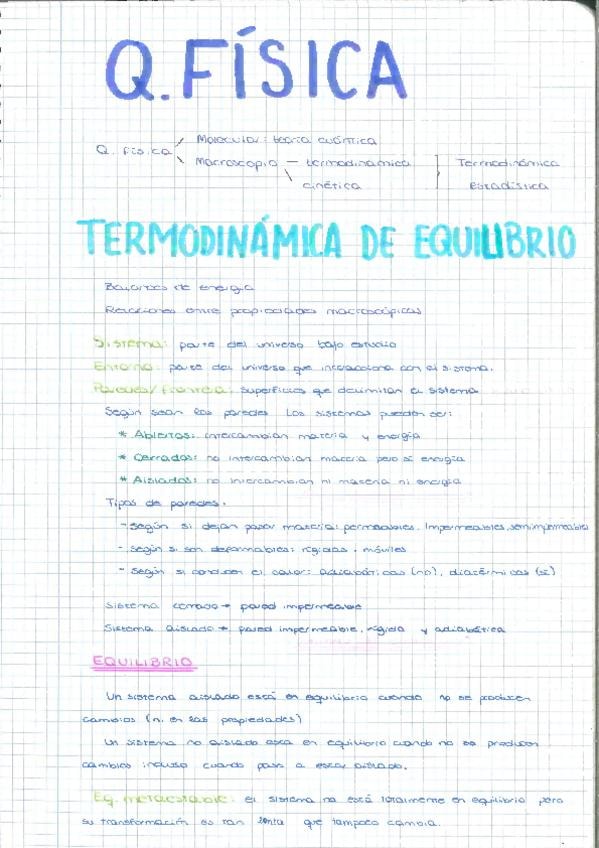 Q. FÍSICA
Q. Física
Molecular: teoría cuántica
Macroscopio — termodinámica
cinética
Termodinámica
Estadística
TERMODINÁMICA DE EQUILIBRIO
Balances de energía
Relaciones entre propiedades macroscópicas
Sistema: parte del universo bajo estudio
Entorno: parte del universo que interacciona con el sistema.
Paredes/Frontera: superficies que delimitan el sistema
Según sean las paredes Los sistemas pueden ser:
* Abiertos: intercambian materia y energía
* Cerrados: no intercambian materia pero sí energía
* Aislados: no intercambian ni materia ni energía
Tipos de paredes:
- Según si dejan pasar materia: permeables, Impermeables, semimpermeables
- Según si son deformables: rígidas o móviles
- Según si conducen el calor: adiabáticas (no), diatérmicas (sí)
Sistema cerrado → pared impermeable
Sistema aislado → pared impermeable, rígida y adiabática
EQUILIBRIO
Un sistema aislado está en equilibrio cuando no se producen
cambios (n. en las propiedades)
Un sistema no aislado está en equilibrio cuando no se producen
cambios incluso cuando pasa a estar aislado.
Eq. metaestable: el sistema no está totalmente en equilibrio pero
su transformación es tan lenta que tampoco cambia.